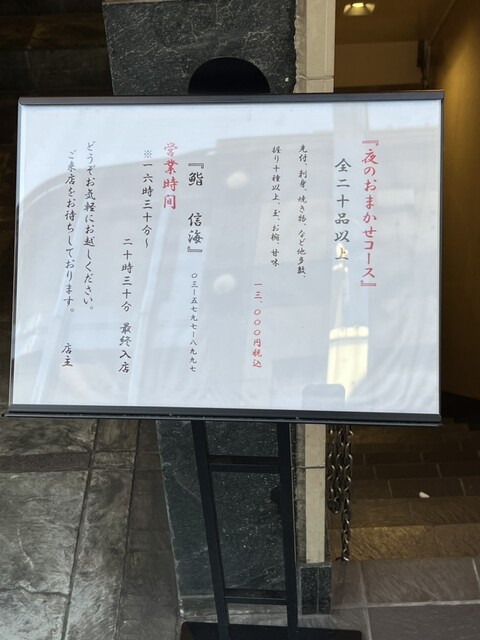 『夜のおまかせコース』
全二十品以上
先付、刺身、焼き物、など他多数、
握り十種以上、玉、お椀、甘味
一三、〇〇〇円税込
『鮨 信海』
〇三ー五七九七ー八九九七
営業時間
※一六時三十分～
二十時三十分 最終入店
どうぞお気軽にお越しください。
ご来店をお待ちしております。
店主